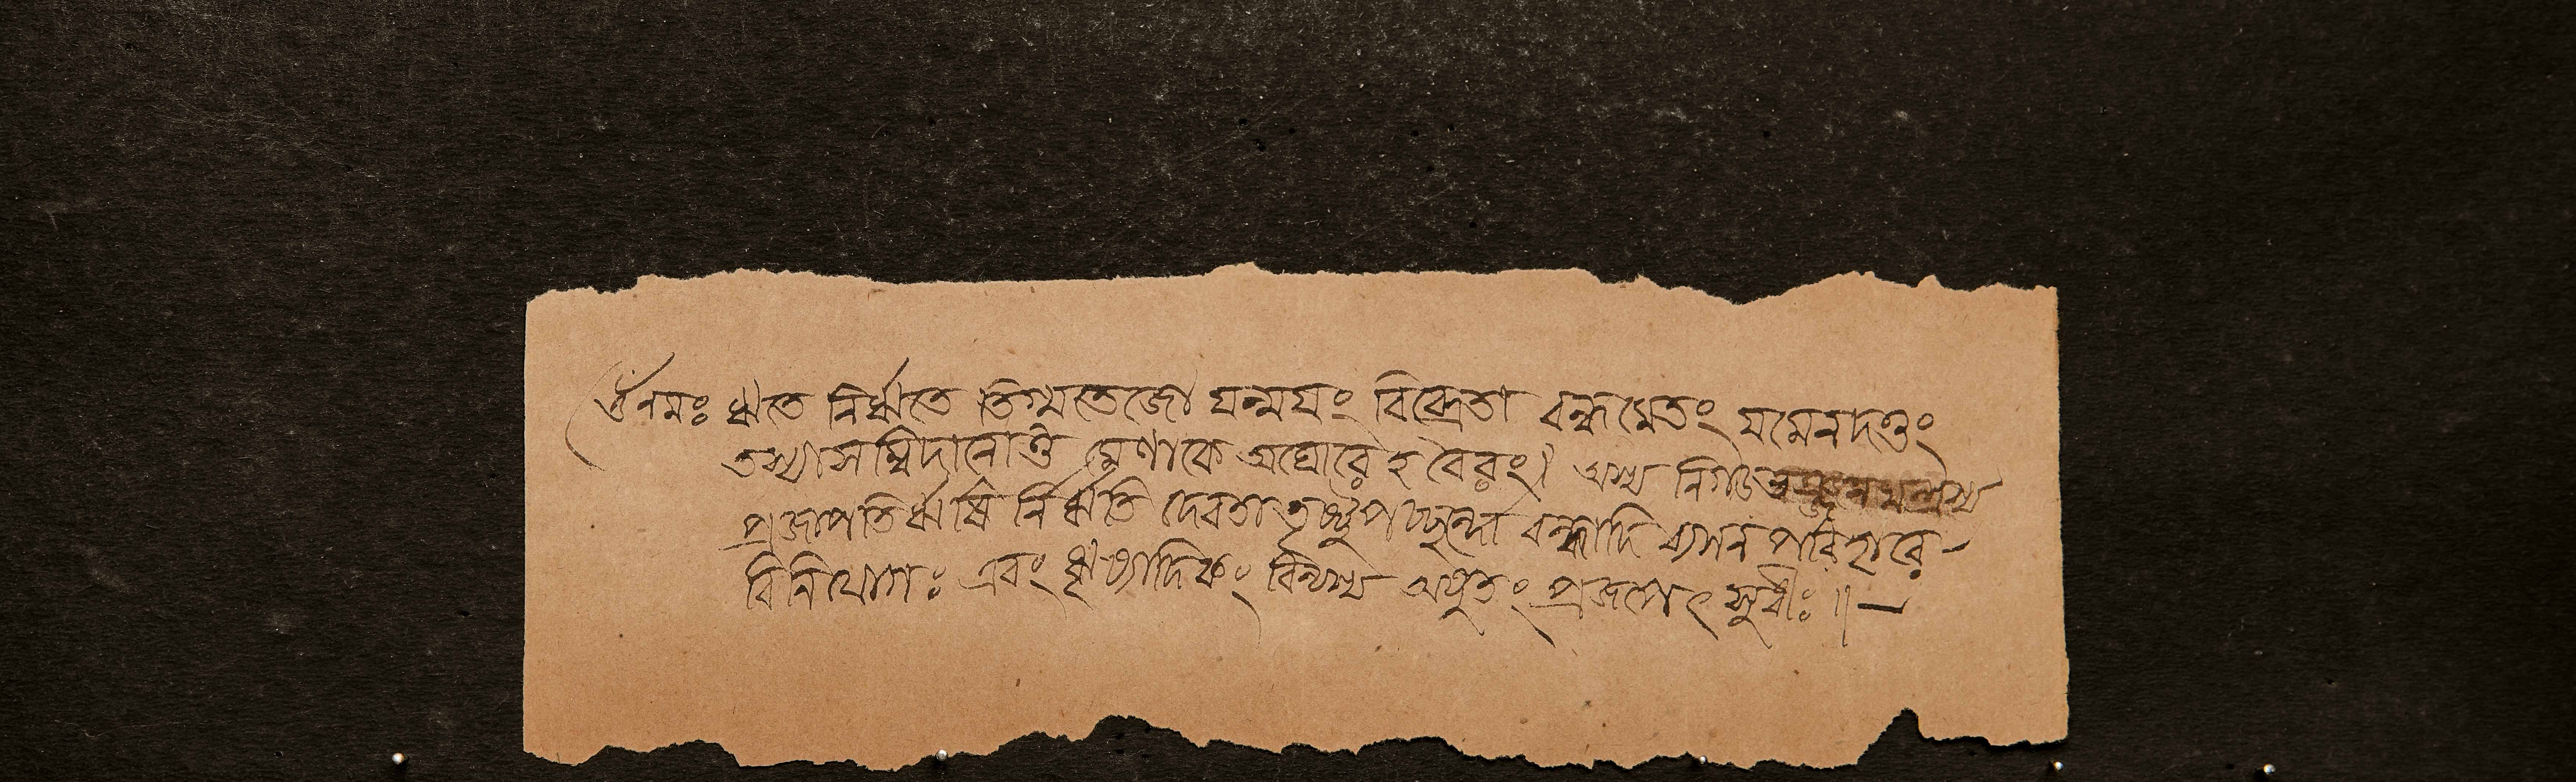 ওঁ নমঃ ঋতে নির্ঋতে তিগ্মতেজো যন্ময়ং বিব্রেতা বন্ধমেতং যমেনদত্তং
তস্যাসম্বিদানোত্ত মেণাকে অঘোরে ২ বৈরং। অস্য নিগড়
প্রজাপতির্ঋষি র্নির্ঋতি দেবতা তৃষ্টুপচ্ছন্দো বন্ধাদি ব্যসন পরিহারে—
বিনিযোগঃ এবং ঋষ্যাদিকং বিন্যস্য অযুতং প্রজপেৎ সুধীঃ॥—